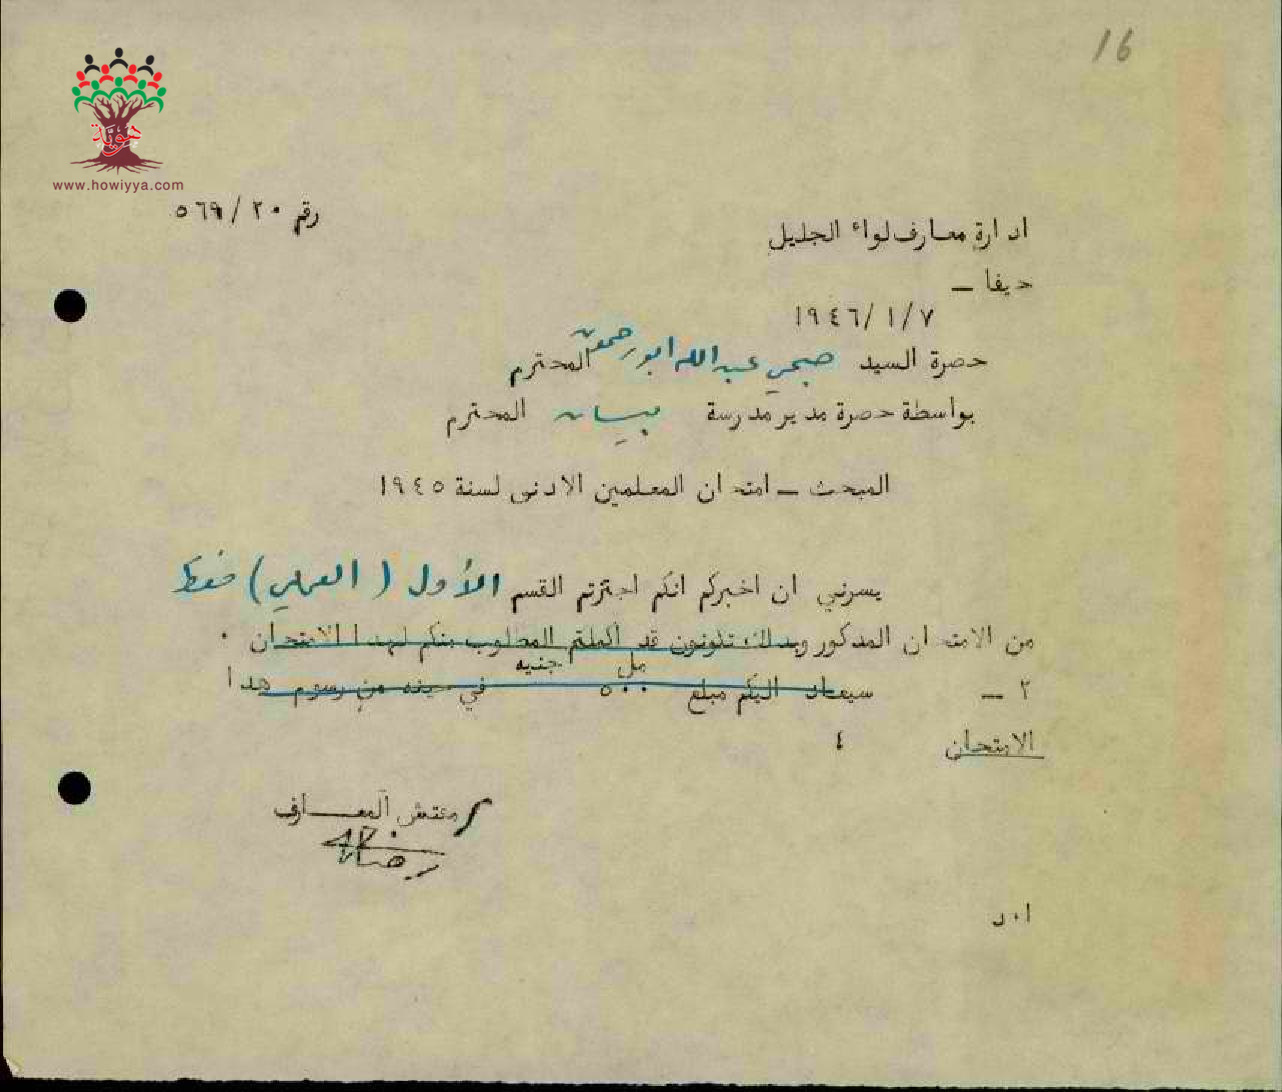 16
هوية
www.howiyya.com
رقم ٢٠/ ٥٦٩
ادارة معارف لواء الجليل
حيفا –
١٩٤٦/١/٧
حضرة السيد صبحي عبدالله ابو رحمون المحترم
بواسطة حضرة مدير مدرسة بيسان المحترم
المبحث – امتحان المعلمين الادنى لسنة ١٩٤٥
يسرني ان اخبركم انكم اجتزتم القسم الأول (العملي) فقط
من الامتحان المذكور وبذلك تكونون قد اكملتم المطلوب منكم لهذا الامتحان ٠
مل جنيه
٢ – سيعاد اليكم مبلغ ٥٠٠ في حينه من رسوم هذا
الامتحان ٤
مفتش المعارف
ا٠د